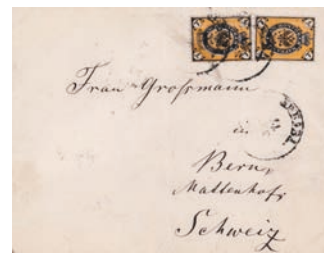 1 1 1 1
Frau Grossmann
in
Bern,
Mattenhof,
Schweiz